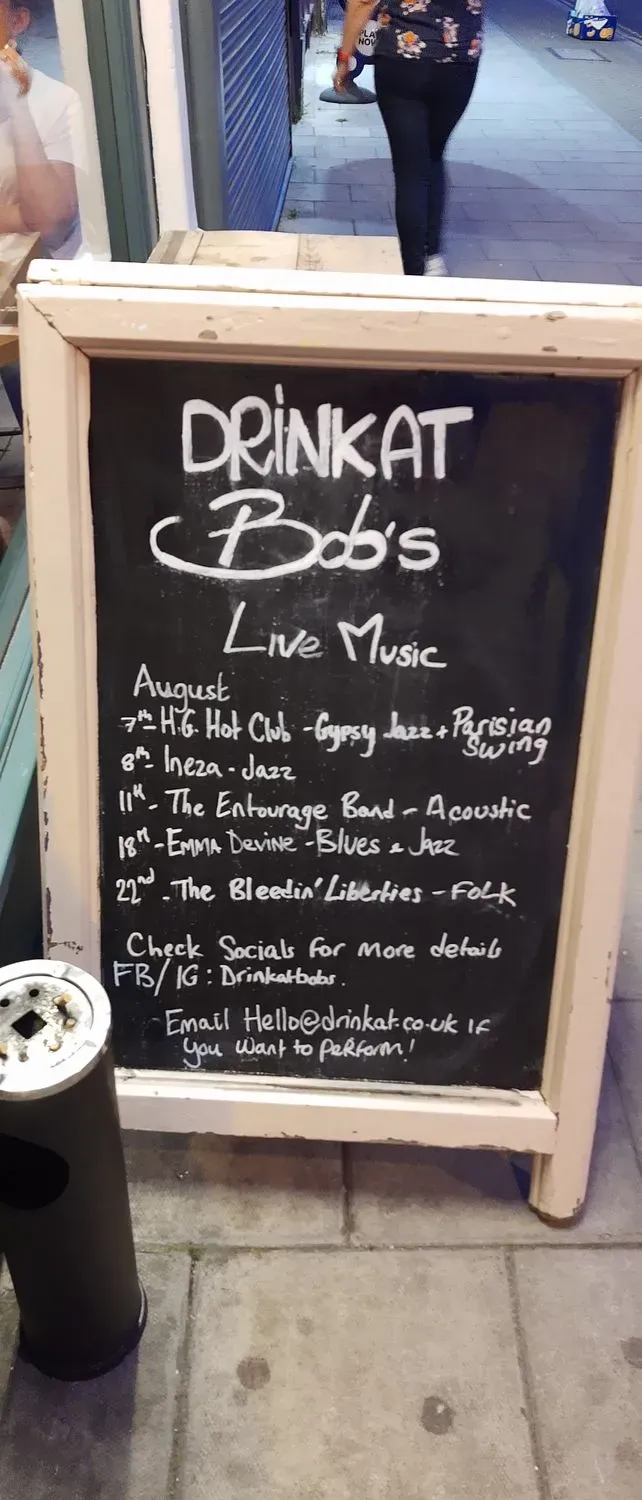 PLAY
NOW
DRINKAT
Bob's
Live Music
August
7th - H.G. Hot Club - Gypsy Jazz + Parisian
Swing
8th - Ineza - Jazz
11th - The Entourage Band - Acoustic
18th - EMMA DEVINE - Blues & Jazz
22nd - The Bleedin' Liberties - FOLK
Check Socials for more details
FB/IG: Drinkatbobs.
Email Hello@drinkat.co.uk IF
you Want to Perform!